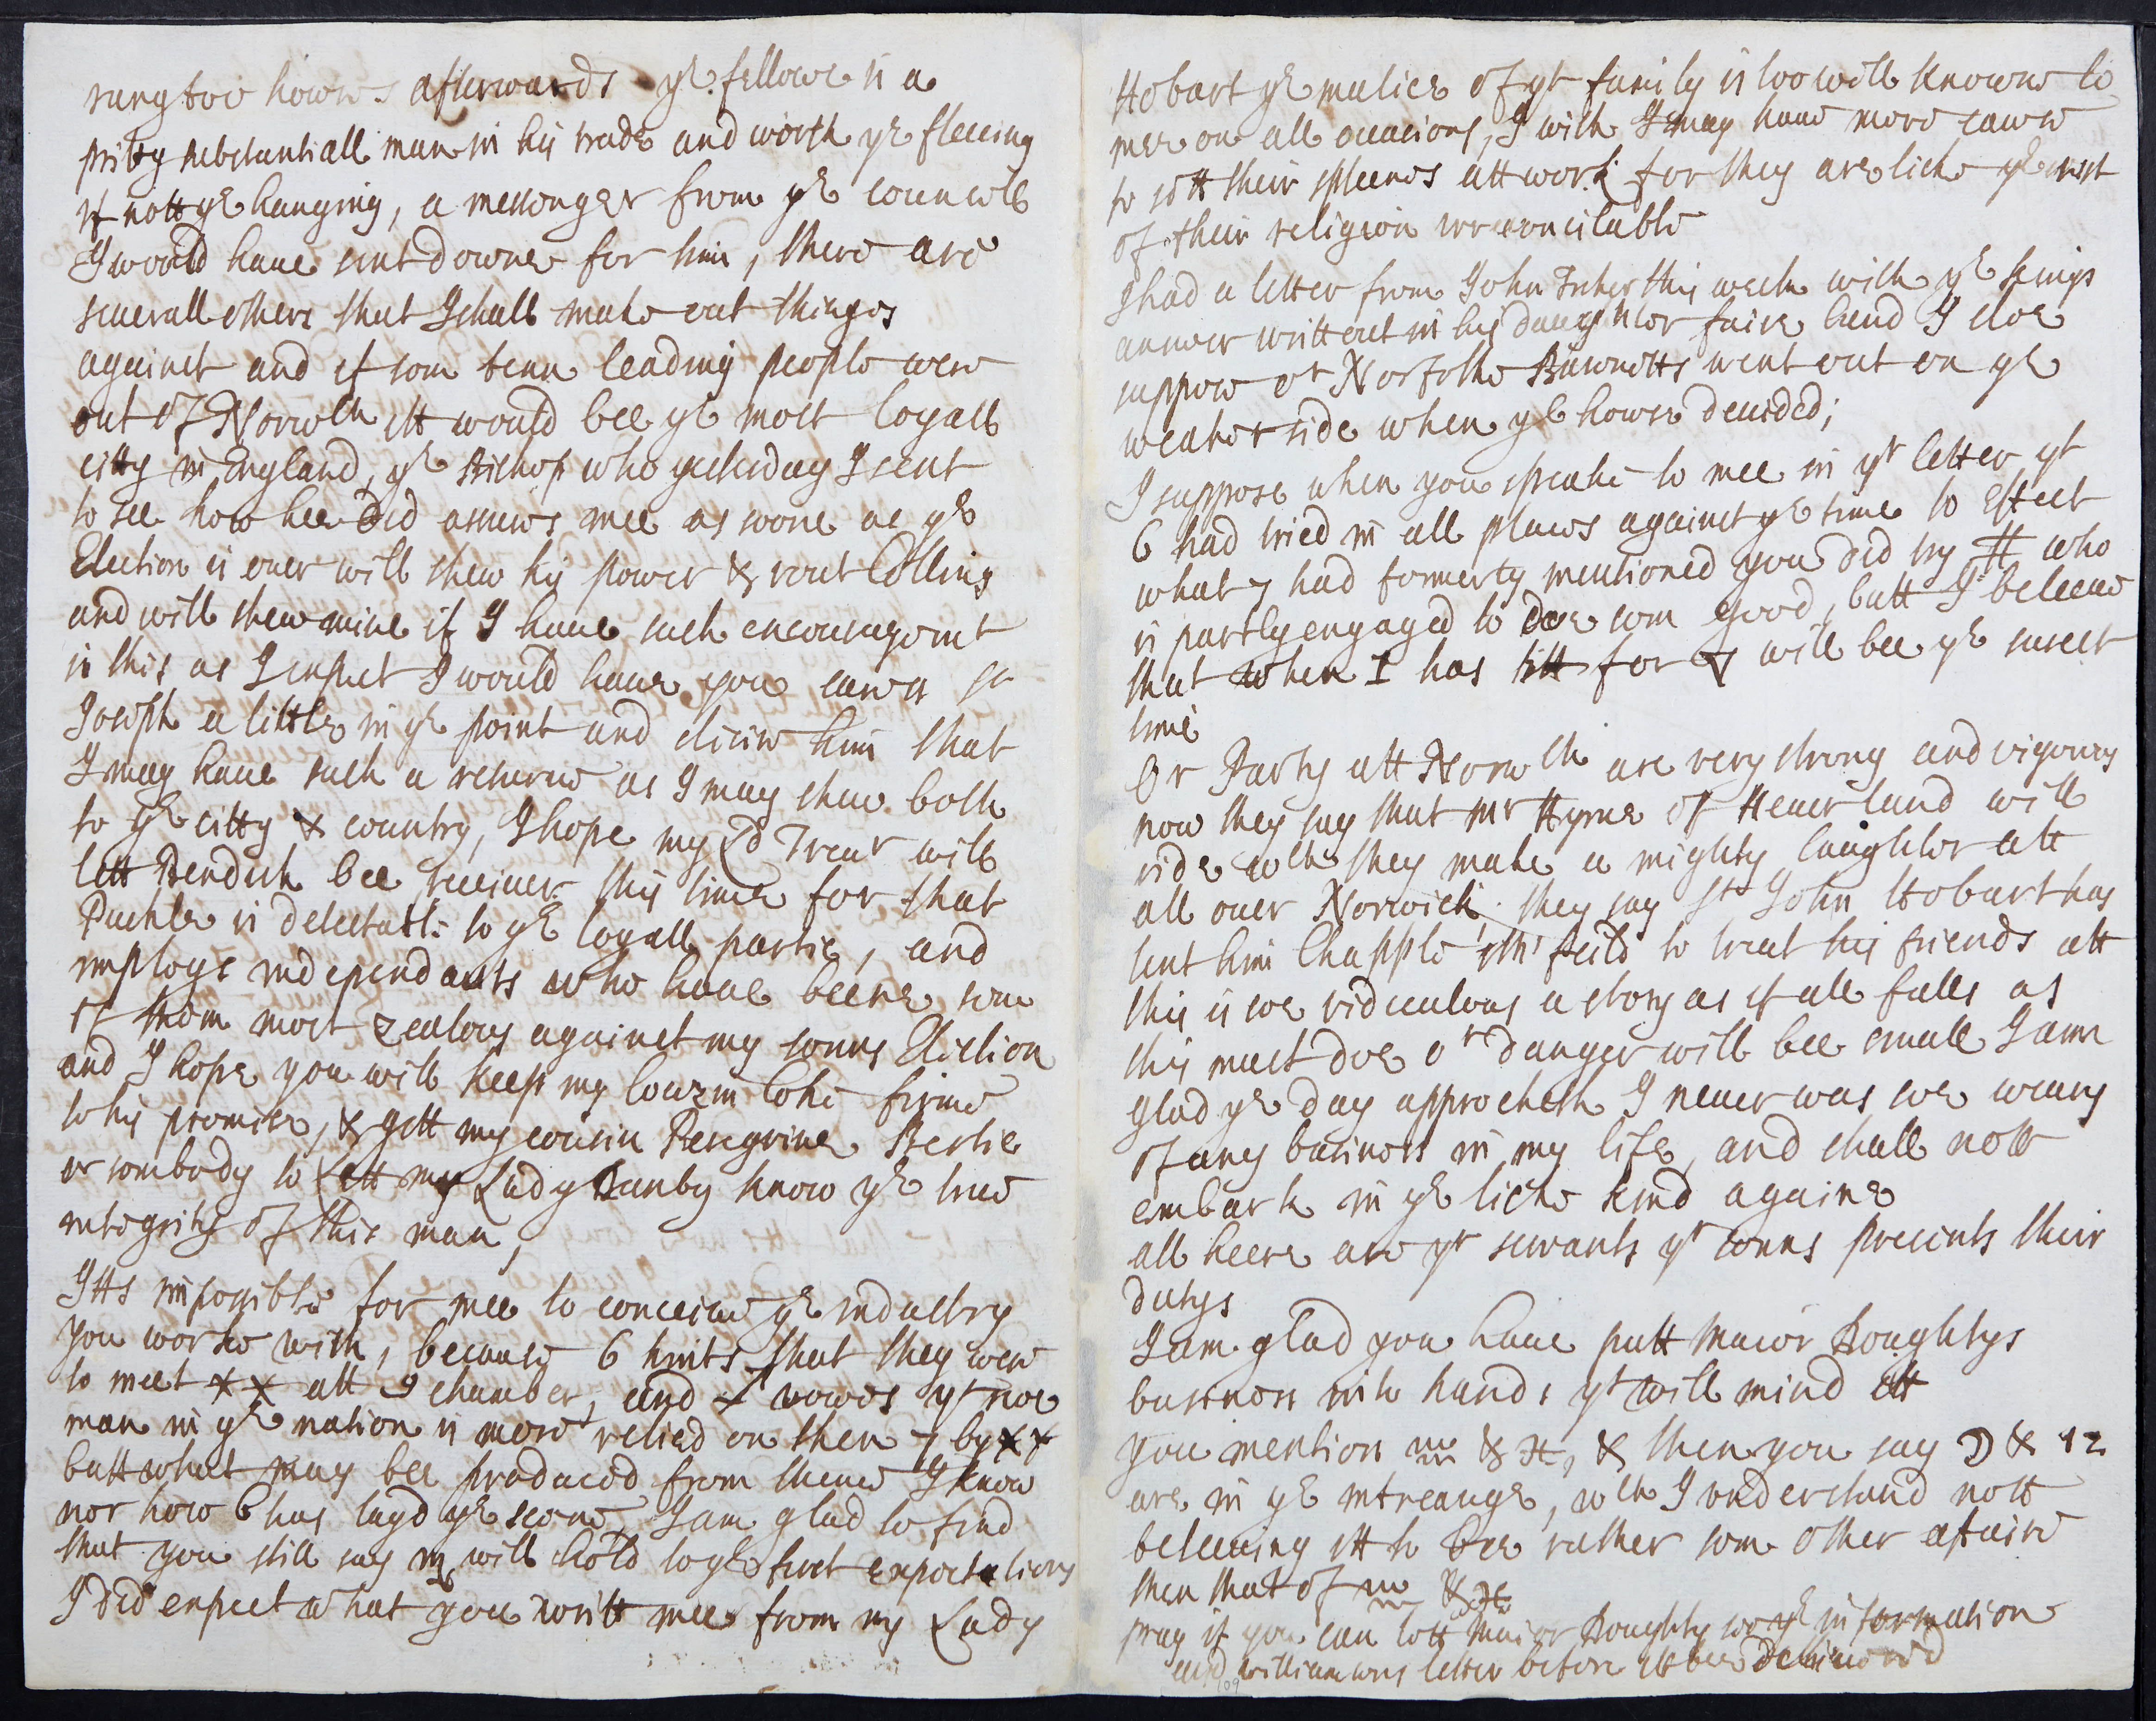 rung two howres afterwards ye fellowe is a
pritty substantiall man in his trade and worth ye fleecing
if nott ye hanging, a messenger from ye councill
I would have sent downe for him, there are
severall others that I shall make out things
against and if som tenn leading people were
out of Norwch itt would bee ye most loyall
citty in England, ye Bishop who yesterday I sent
to see how hee did assures mee as soone as ye
Election is over will shew his power & rout Collins
and will shew mine if I have such encouragemt
in this as I expect I would have you cawse Sr
Joseph a little in ye point and desire him that
I may have such a returne as I may shew both
to ye citty & country, I hope my Ld Trear will
lett Bendish bee receiver this time for that
Puckle is detestable to ye loyall partie, and
imploys independants who have beene som
of them most zealous against my sonns Election
and I hope you will keep my Cowzin Coke firme
to his promise, & gett my cousin Peregrine Bertie
or sombody to lett my Lady Danby know ye true
integrity of this man,
Itts impossible for mee to conceive ye industry
you worke with, because 6 hints that they were
to meet att chamber, and vowes yt noe
man in ye nation is more relied on then by
butt what may bee produced from thence I know
nor how 6 has layd ye scene, I am glad to find
that you still say will hold to ye first expectations
I did expect what you writt mee from my Lady
Hobart ye malice of yt family is too well knowne to
mee on all occasions, I wish I may have more cawse
to sett their spleenes att work for they are like ye rest
of their religion irreconcilable
I had a letter from John this weeke with ye kings
answer writt out in his daughter faire hand I doe
suppose or Norfolke Burnetts went out on ye
weaker side when ye howse devided;
I suppose when you speake to mee in yr letter yt
6 had tried in all places against ye time to effect
what 7 had formerly mentioned you did by who
is partly engaged to doe som good, butt I beleeve
that when I has sitt for will bee ye surest
time
Or Party att Norwch are very strong and vigorous
now they say that mr Hyrne of Heverland will
ride wch they make a mighty laughter att
all over Norwich, they say Sr John Hobart has
lent him Chapple ith feild to treat his friends att
this is soe ridiculous a story as if all falls as
this must doe or danger will bee small I am
glad ye day approcheth I never was soe weary
of any business in my life, and shall nott
embark in ye like kind againe
all heere are yr servants yr sonns presents their
dutys
I am glad you have putt Maior Doughtys
business into hands yt will mind itt
you mention & , & then you say & 12
are in ye intreauge, wch I understand nott
beleeving itt to bee rather som other afaire
then that of &
pray if you can lett Maior Doughty see ye information
and williamsons letter before itt bee delivered
109